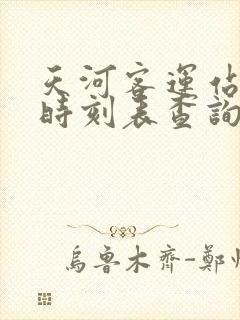 天河客運佔
時刻表查詢
烏魯木齊-鄭州